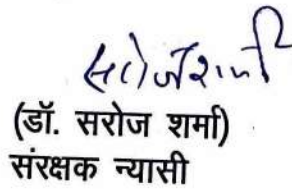 सरोज शर्मा
(डॉ. सरोज शर्मा)
संरक्षक न्यासी